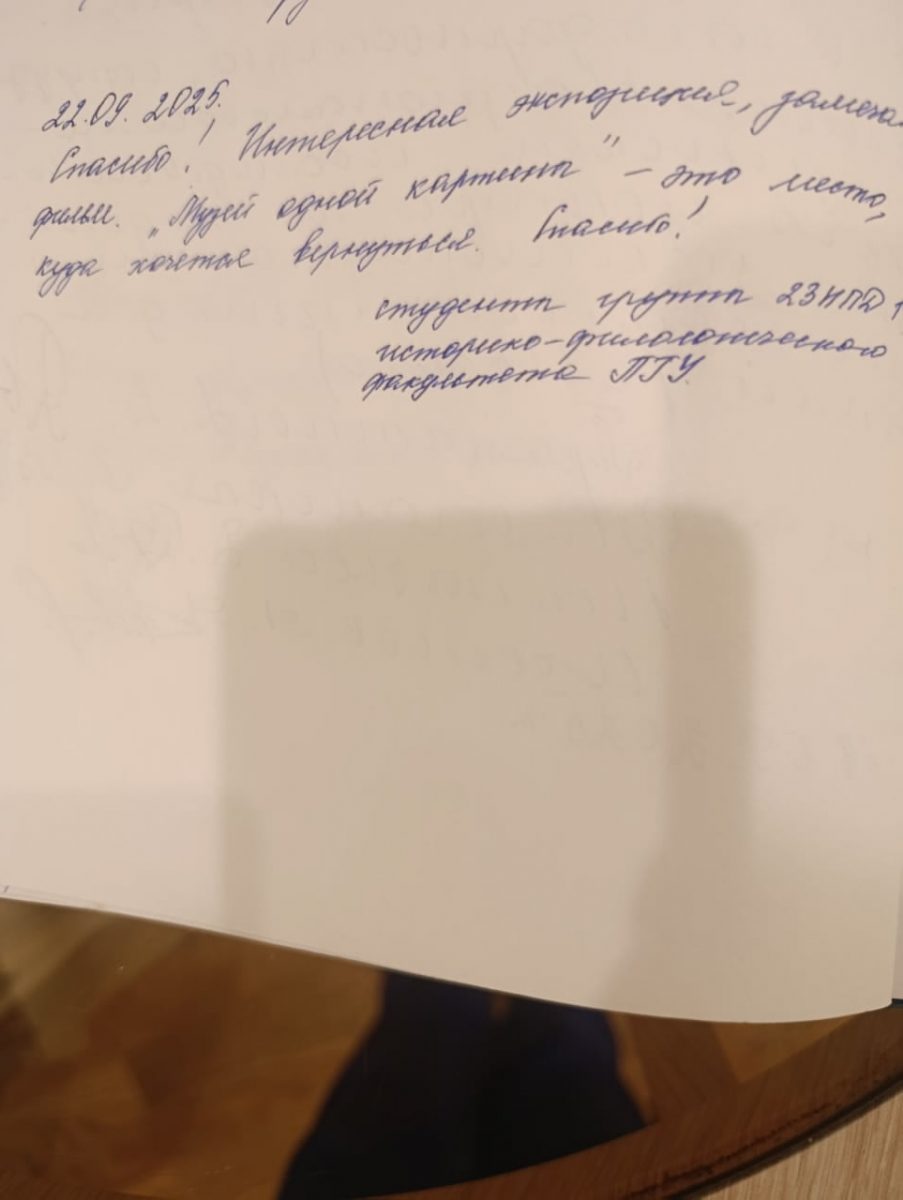 22.09.2025.
Спасибо! Интересная экспозиция, замеча
фильм. „Музей одной картины" – это место,
куда хочется вернуться. Спасибо!
студенты группы 23ИПД1
историко-филологического
факультета ПГУ.